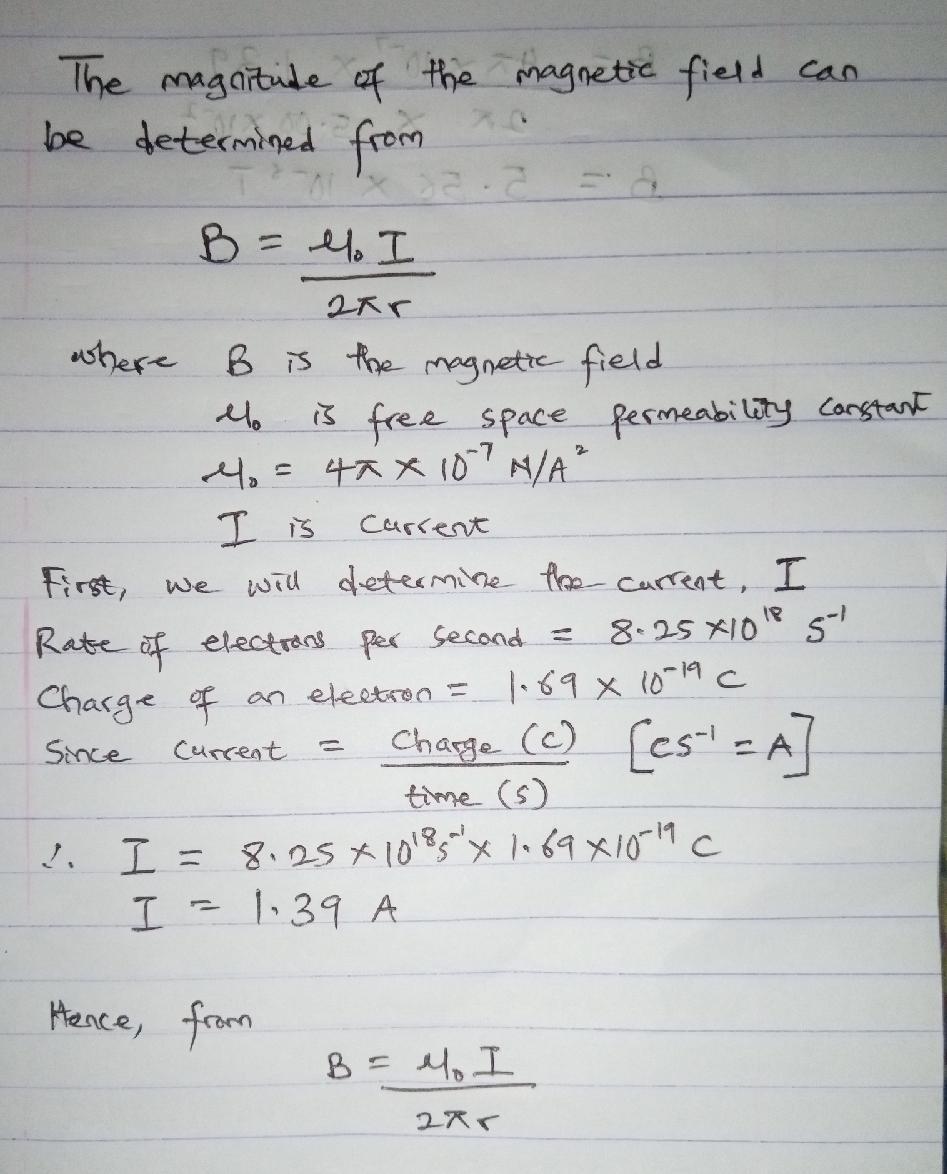 The magnitude of the magnetic field can
be determined from
B = μ₀ I
2πr
where B is the magnetic field
μ₀ is free space permeability constant
μ₀ = 4π × 10⁻⁷ N/A²
I is current
First, we will determine the current, I
Rate of electrons per second = 8.25 ×10¹⁸ s⁻¹
Charge of an electron = 1.69 × 10⁻¹⁹ C
Since current = Charge (C) [Cs⁻¹ = A]
time (s)
∴ I = 8.25 × 10¹⁸s⁻¹ × 1.69 ×10⁻¹⁹ C
I = 1.39 A
Hence, from
B = μ₀ I
2πr